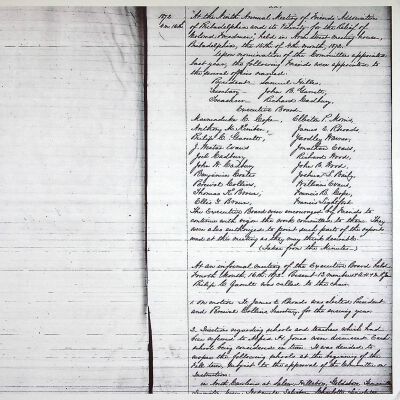 1872
4 mo. 16th
At the Ninth Annual Meeting of Friends Association
of Philadelphia and its Vicinity for the Relief of
Colored Freedmen, held in Arch Street meeting house,
Philadelphia, the 16th of 4th month, 1872.
Upon nomination of the Committee appointed
last year, the following Friends were appointed to
the several offices named:
President Samuel Hilles,
Secretary John B. Garrett,
Treasurer Richard Cadbury,
Executive Board
Marmaduke C. Cope, Elliston P. Morris,
Anthony M. Kimber, James E. Rhoads,
Philip C. Garrett, Yardley Warner,
J. Wistar Evans Jonathan Evans,
Joel Cadbury Richard Wood,
John W. Cadbury John B. Wood,
Benjamin Coates Joshua L. Baily,
Percival Collins, William Evans,
Thomas K. Brown, Francis R. Cope,
Ellis G. Brown, Francis Lightfoot
The Executive Board were encouraged by Friends to
continue with vigor the work committed to them. They
were also authorized to print such parts of the reports
read at the meeting as they may think desirable.
(Taken from the Minutes)
At an informal meeting of the Executive Board held
Fourth Month 16th 1872. Present 13 members
Philip C. Garrett was called to the chair.
1. On motion James E. Rhoads was elected President
and Percival Collins Secretary for the ensuing year.
2. Questions regarding schools and teachers which had
been referred to Alfred H. Jones were discussed. Each
school being considered in turn. It was decided to
reopen the following schools at the beginning of the
Fall term, subject to the approval of the Committee on
Instruction:
in North Carolina at Salem, Hillsboro, Goldsboro,
Charlotte